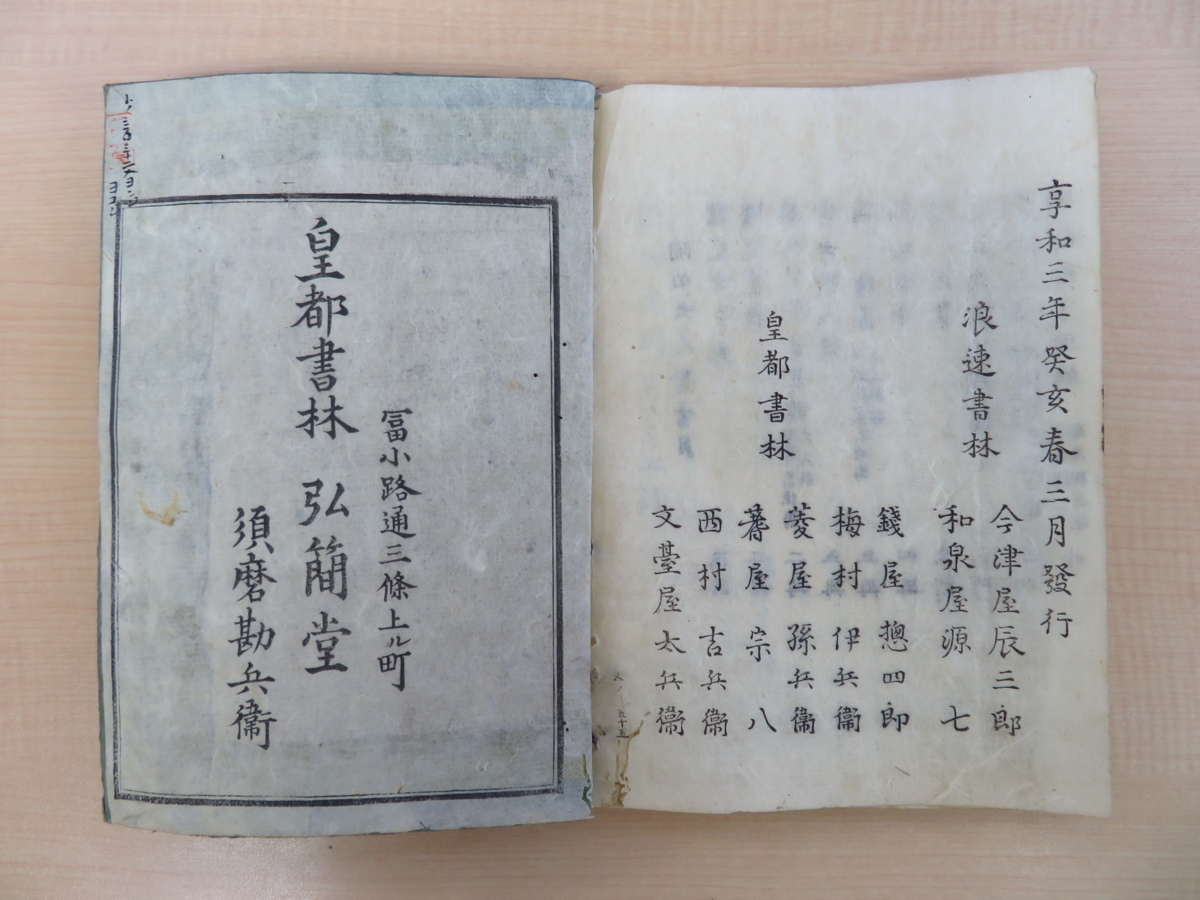 享和三年癸亥春三月發行
浪速書林
今津屋辰三郎
和泉屋源七
皇都書林
錢屋摠四郎
梅村伊兵衞
菱屋孫兵衞
蓍屋宗八
西村吉兵衞
文臺屋太兵衞
冨小路通三條上ル町
皇都書林 弘簡堂
須磨勘兵衞